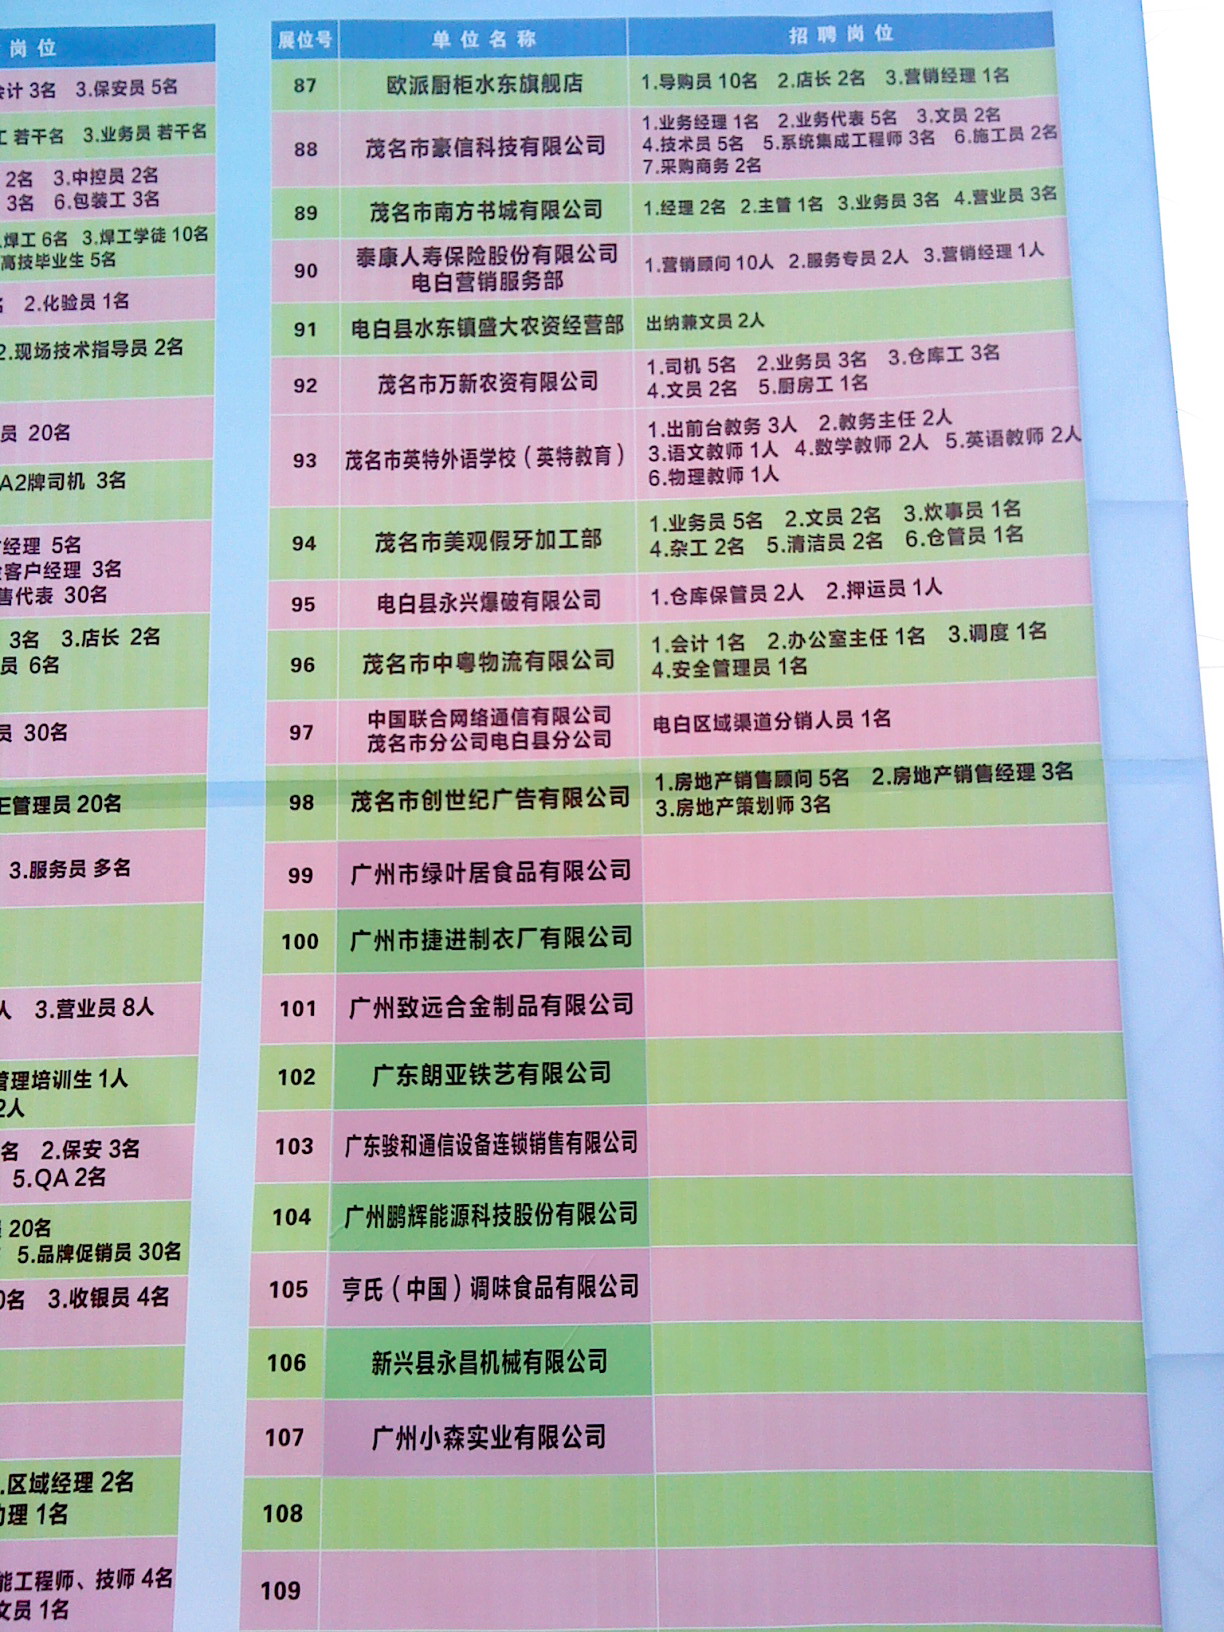 岗 位
会计 3名 3.保安员 5名
工 若干名 3.业务员 若干名
2名 3.中控员 2名
3名 6.包装工 3名
.焊工 6名 3.焊工学徒 10名
高技毕业生 5名
2.化验员 1名
2.现场技术指导员 2名
员 20名
A2牌司机 3名
经理 5名
客户经理 3名
售代表 30名
3名 3.店长 2名
员 6名
员 30名
管理员 20名
3.服务员 多名
人 3.营业员 8人
管理培训生 1人
2人
名 2.保安 3名
5.QA 2名
20名
5.品牌促销员 30名
0名 3.收银员 4名
.区域经理 2名
助理 1名
能工程师、技师 4名
文员 1名
展位号 单 位 名 称 招 聘 岗 位
87 欧派厨柜水东旗舰店 1.导购员 10名 2.店长 2名 3.营销经理 1名
88 茂名市豪信科技有限公司 1.业务经理 1名 2.业务代表 5名 3.文员 2名
4.技术员 5名 5.系统集成工程师 3名 6.施工员 2名
7.采购商务 2名
89 茂名市南方书城有限公司 1.经理 2名 2.主管 1名 3.业务员 3名 4.营业员 3名
90 泰康人寿保险股份有限公司
电白营销服务部 1.营销顾问 10人 2.服务专员 2人 3.营销经理 1人
91 电白县水东镇盛大农资经营部 出纳兼文员 2人
92 茂名市万新农资有限公司 1.司机 5名 2.业务员 3名 3.仓库工 3名
4.文员 2名 5.厨房工 1名
93 茂名市英特外语学校（英特教育） 1.出前台教务 3人 2.教务主任 2人
3.语文教师 1人 4.数学教师 2人 5.英语教师 2人
6.物理教师 1人
94 茂名市美观假牙加工部 1.业务员 5名 2.文员 2名 3.炊事员 1名
4.杂工 2名 5.清洁员 2名 6.仓管员 1名
95 电白县永兴爆破有限公司 1.仓库保管员 2人 2.押运员 1人
96 茂名市中粤物流有限公司 1.会计 1名 2.办公室主任 1名 3.调度 1名
4.安全管理员 1名
97 中国联合网络通信有限公司
茂名市分公司电白县分公司 电白区域渠道分销人员 1名
98 茂名市创世纪广告有限公司 1.房地产销售顾问 5名 2.房地产销售经理 3名
3.房地产策划师 3名
99 广州市绿叶居食品有限公司
100 广州市捷进制衣厂有限公司
101 广州致远合金制品有限公司
102 广东朗亚铁艺有限公司
103 广东骏和通信设备连锁销售有限公司
104 广州鹏辉能源科技股份有限公司
105 亨氏（中国）调味食品有限公司
106 新兴县永昌机械有限公司
107 广州小森实业有限公司
108
109